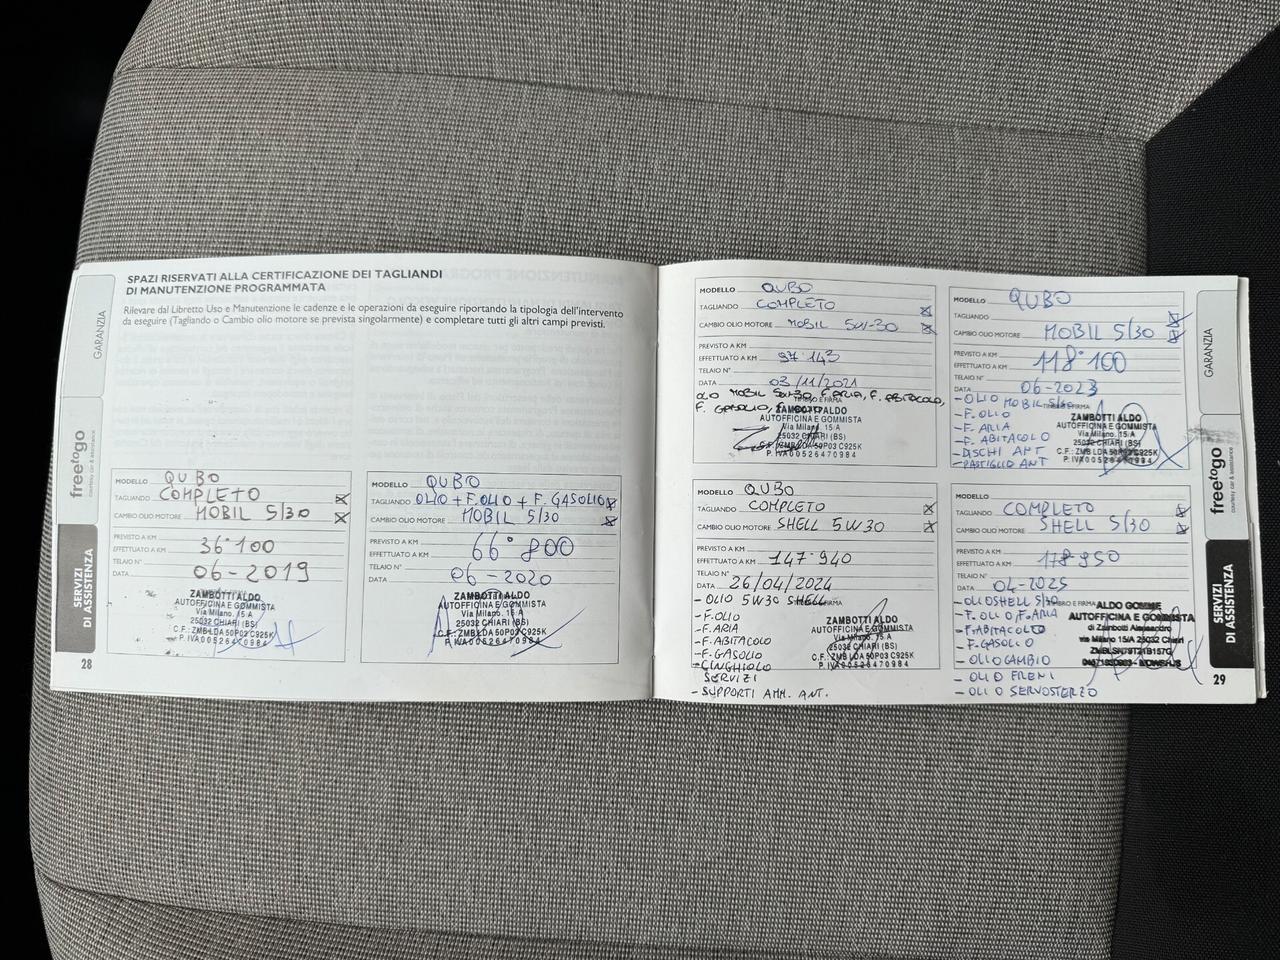 SPAZI RISERVATI ALLA CERTIFICAZIONE DEI TAGLIANDI
DI MANUTENZIONE PROGRAMMATA
Rilevare dal Libretto Uso e Manutenzione le cadenze e le operazioni da eseguire riportando la tipologia dell'intervento
da eseguire (Tagliando o Cambio olio motore se prevista singolarmente) e completare tutti gli altri campi previsti.
GARANZIA
freetogo
courtesy car & assistance
SERVIZI
DI ASSISTENZA
28
MODELLO QUBO
TAGLIANDO COMPLETO
CAMBIO OLIO MOTORE MOBIL 5/30
PREVISTO A KM
EFFETTUATO A KM 36°100
TELAIO N°
DATA 06-2019
ZAMBOTTI ALDO
AUTOFFICINA E GOMMISTA
Via Milano, 15/A
25032 CHIARI (BS)
C.F.: ZMB LDA 50P03 C925K
P. IVA 00526470984
MODELLO QUBO
TAGLIANDO OLIO + F.OLIO + F. GASOLIO
CAMBIO OLIO MOTORE MOBIL 5/30
PREVISTO A KM
EFFETTUATO A KM 66°800
TELAIO N°
DATA 06-2020
ZAMBOTTI ALDO
AUTOFFICINA E GOMMISTA
Via Milano, 15/A
25032 CHIARI (BS)
C.F.: ZMB LDA 50P03 C925K
P. IVA 00526470984
MODELLO QUBO
TAGLIANDO COMPLETO
CAMBIO OLIO MOTORE MOBIL 5W-30
PREVISTO A KM
EFFETTUATO A KM 97°143
TELAIO N°
DATA 03/11/2021
OLIO MOBIL 5W30, F. ARIA, F. ABITACOLO,
F. GASOLIO,
ZAMBOTTI ALDO
AUTOFFICINA E GOMMISTA
Via Milano, 15/A
25032 CHIARI (BS)
C.F.: ZMB LDA 50P03 C925K
P. IVA 00526470984
MODELLO QUBO
TAGLIANDO
CAMBIO OLIO MOTORE MOBIL 5/30
PREVISTO A KM
EFFETTUATO A KM 118°100
TELAIO N°
DATA 06-2023
- OLIO MOBIL 5/30
- F. OLIO
- F. ARIA
- F. ABITACOLO
- DISCHI ANT
- PASTIGLIE ANT
ZAMBOTTI ALDO
AUTOFFICINA E GOMMISTA
Via Milano, 15/A
25032 CHIARI (BS)
C.F.: ZMB LDA 50P03 C925K
P. IVA 00526470984
MODELLO QUBO
TAGLIANDO COMPLETO
CAMBIO OLIO MOTORE SHELL 5W30
PREVISTO A KM
EFFETTUATO A KM 147°940
TELAIO N°
DATA 26/04/2024
- OLIO 5W30 SHELL
- F.OLIO
- F.ARIA
- F.ABITACOLO
- F.GASOLIO
- CINGHIOLO
SERVIZI
- SUPPORTI AMM. ANT.
ZAMBOTTI ALDO
AUTOFFICINA E GOMMISTA
Via Milano, 15/A
25032 CHIARI (BS)
C.F.: ZMB LDA 50P03 C925K
P. IVA 00526470984
MODELLO
TAGLIANDO COMPLETO
CAMBIO OLIO MOTORE SHELL 5/30
PREVISTO A KM
EFFETTUATO A KM 178°950
TELAIO N°
DATA 04-2025
- OLIO SHELL 5/30
- F. OLIO F. ARIA
- F. ABITACOLO
- F. GASOLIO
- OLIO CAMBIO
- OLIO FRENI
- OLIO SERVOSTERZO
TIMBRO E FIRMA
ALDO GOMME
AUTOFFICINA E GOMMISTA
di Zambotti Alessandro
via Milano 15/A 25032 Chiari
GARANZIA
freetogo
courtesy car & assistance
SERVIZI
DI ASSISTENZA
29